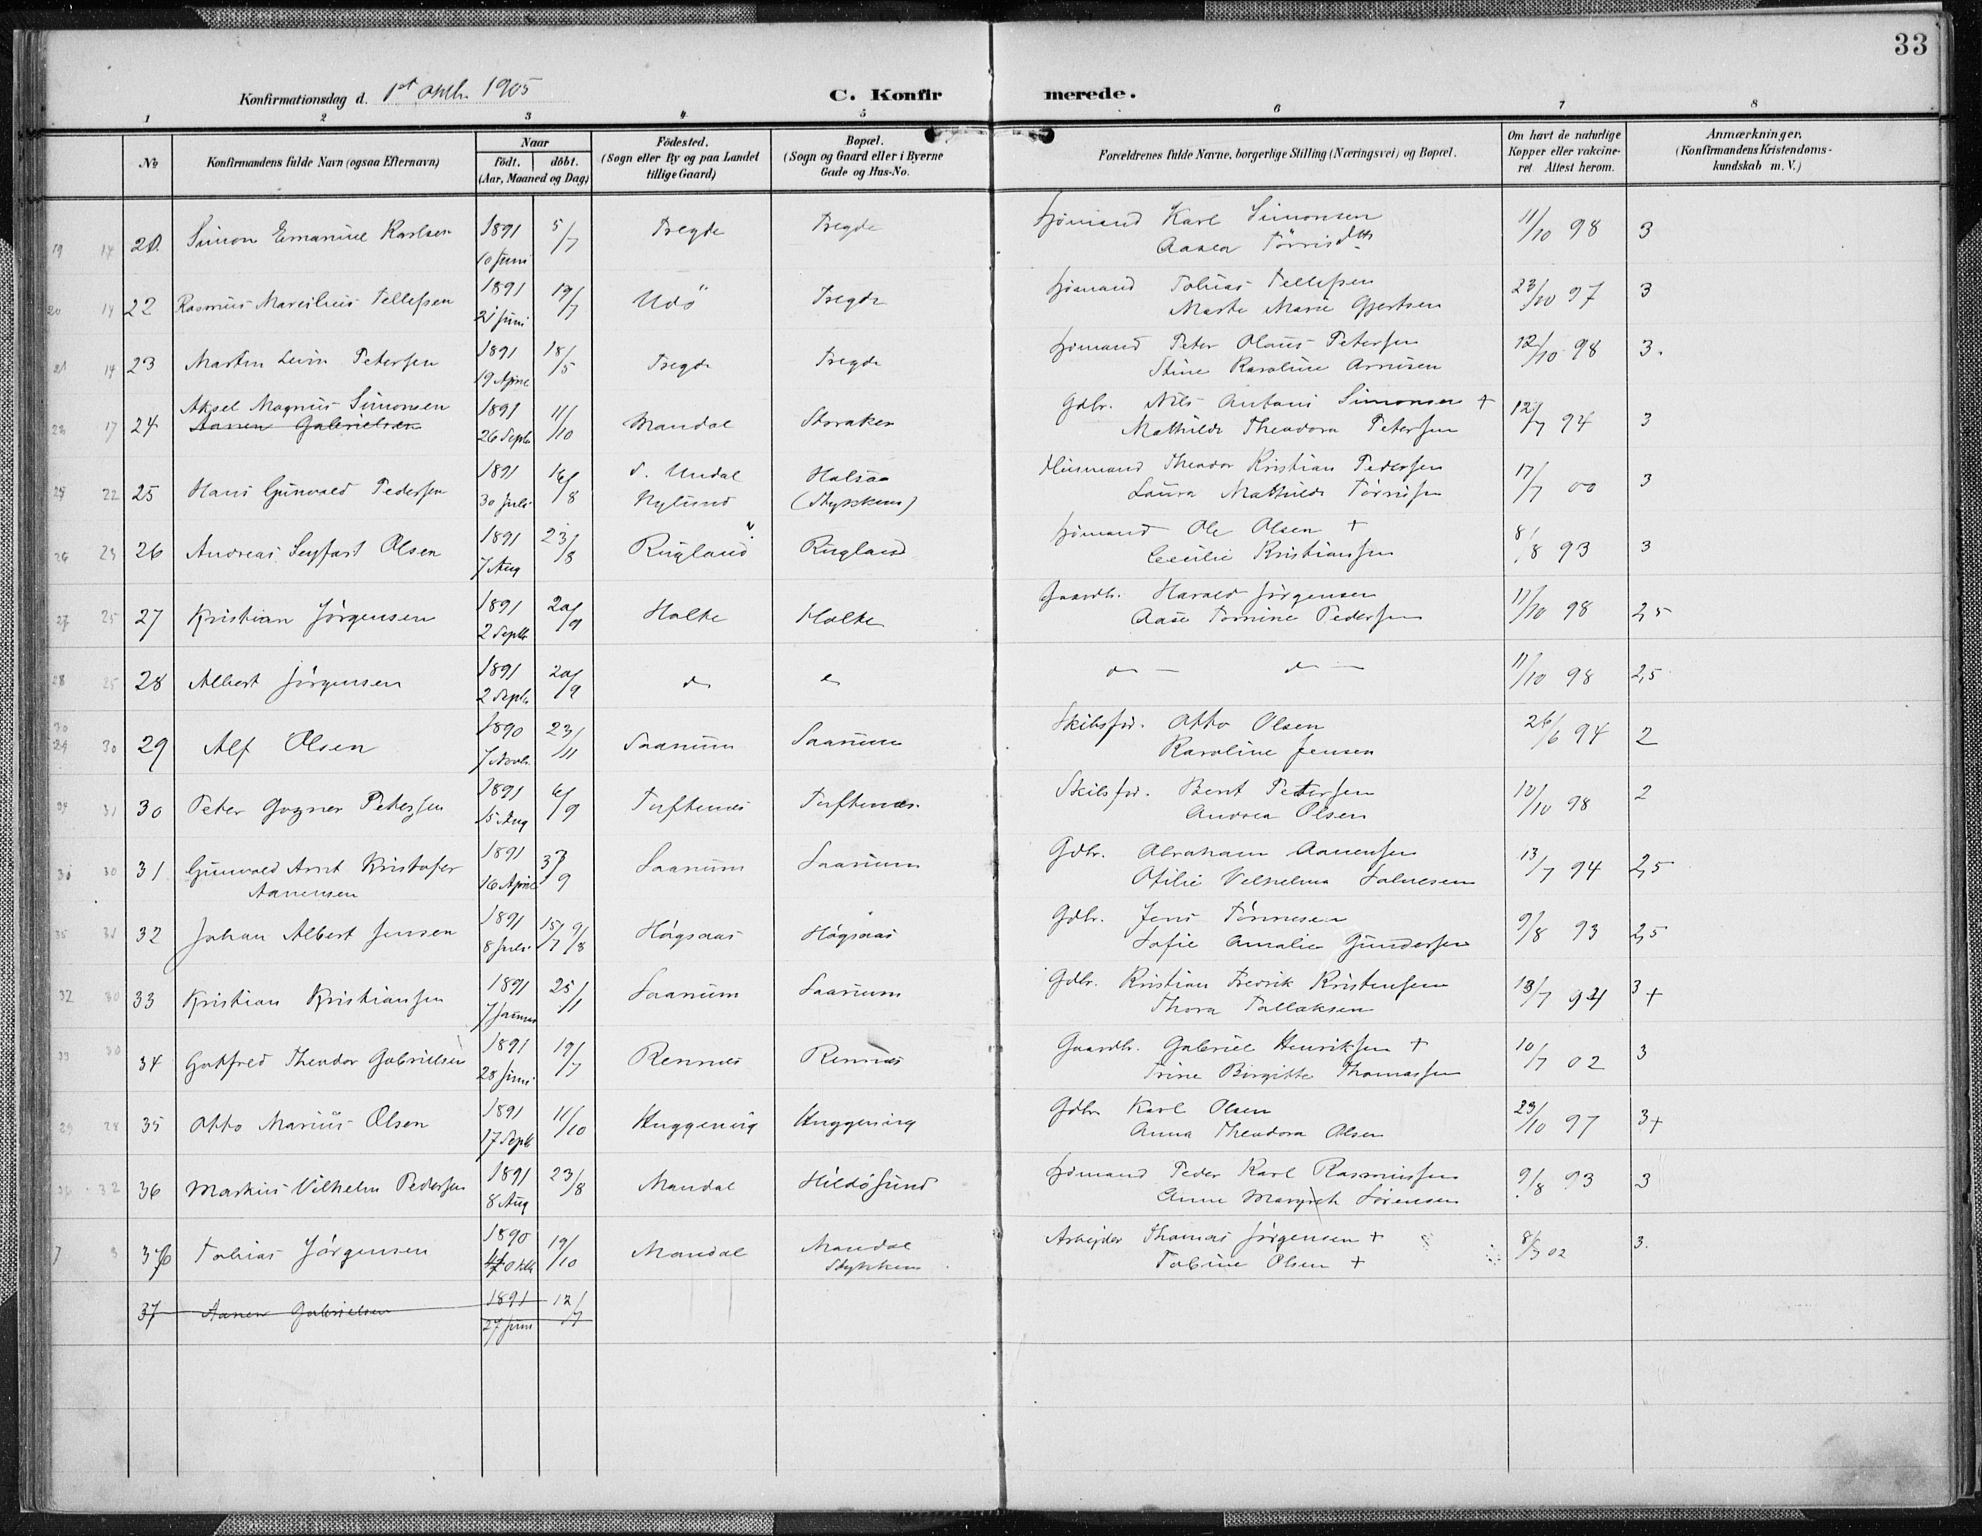 33
Konfirmationsdag d. 1st oktbr. 1905
C. Konfirmerede.
1 2 3 4 5 6 7 8
No
Konfirmandens fulde Navn (ogsaa Efternavn)
Naar
Födt. döbt.
(Aar, Maaned og Dag)
Födested.
(Sogn eller By og paa Landet
tillige Gaard)
Bopæl.
(Sogn og Gaard eller i Byerne
Gade og Hus-No.
Forældrenes fulde Navne, borgerlige Stilling (Næringsvei) og Bopæl.
Om havt de naturlige
Kopper eller vakcine-
ret Attest herom.
Anmærkninger.
(Konfirmandens Kristendoms-
kundskab m. V.)
19 14 Simon Emanuel Karlsen 1891 5/7 Tregde Tregde Sjömand Karl Simonsen 11/10 98 3
10 Juni Aasea Törrisdttr
20 14 22 Rasmus Marsilius Tellefsen 1891 19/7 Udö Tregde Sjömand Tobias Tellefsen 23/10 97 3
21 Juni Marte Marie Gjertsen
21 14 23 Martin Levin Petersen 1891 18/5 Tregde Tregde Sjömand Peter Olaus Petersen 12/10 98 3.
19 April Stine Karoline Arnesen
17 24 Aksel Magnus Simonsen 1891 11/10 Mandal Storaker Gdbr. Nils Antoni Simonsen + 12/7 94 3
Aanen Gabrielsen 26 Septbr Mathilde Theodora Petersen
22 25 Hans Gunvald Pedersen 1891 16/8 S. Undal Halsaa Husmand Theodor Kristian Pedersen 17/7 00 3
30 Juli Nylund (Stykkene) Laura Mathilde Törrisen
26 23 26 Andreas Seyfart Olsen 1891 23/8 Rugland Rugland Sjömand Ole Olsen + 8/8 93 3
7 Aug Cecilie Kristiansen
27 25 27 Kristian Jörgensen 1891 20/9 Holte Holte Gaardb. Harald Jörgensen 11/10 98 2,5
2 Septbr Aase Tomine Pedersen
28 25 28 Albert Jörgensen 1891 20/9 do do — do — 11/10 98 2,5
2 Septbr
30
29 30 29 Alf Olsen 1890 23/11 Saanum Saanum Skibsför. Otto Olsen 26/6 94 2
7 Novbr. Karoline Jensen
34 31 30 Peter Gogner Petersen 1891 6/9 Tuftenes Tuftenes. Skibsför. Bent Petersen 10/10 98 2
15 Aug Andrea Olsen
30 31 Gunvald Arnt Kristofer 1891 Saanum Saanum Gdbr. Abraham Aanensen 13/7 94 2,5
Aanensen 16 April Otilie Vilhelma Salvesen
35 31 32 Johan Albert Jensen 1891 15/7 9/8 Högsaas Högsaas Gdbr. Jens Tönnesen 9/8 93 2,5
8 Juli Sofie Amalie Gundersen
32 30 33 Kristian Kristiansen 1891 25/1 Saanum Saanum Gdbr. Kristian Fredrik Kristensen 13/7 94 3+
7 Januar Thora Tallaksen
33 30 34 Gotfred Theodor Gabrielsen 1891 19/7 Rennes Rennes Gaardb. Gabriel Henriksen + 10/7 02 3
28 Juni Trine Birgitte Thomassen
29 28 35 Otto Marius Olsen 1891 11/10 Huggening Huggening Gdbr Karl Olsen 23/10 97 3+
17 Septbr Anna Theodora Olsen
36 32 36 Markus Vilhelm Pedersen 1891 23/8 Mandal Hildösund Sjömand Peder Karl Rasmussen 9/8 93 3
8 Aug Anne Margreth Sörensen
7 3 36 Tobias Jörgensen 1890 19/10 Mandal Mandal Arbejder Thomas Jörgensen + 02 3.
Oktbr Stykkene Tobine Olsen +
37 Aanen Gabrielsen 1891 12/7
27 Juni